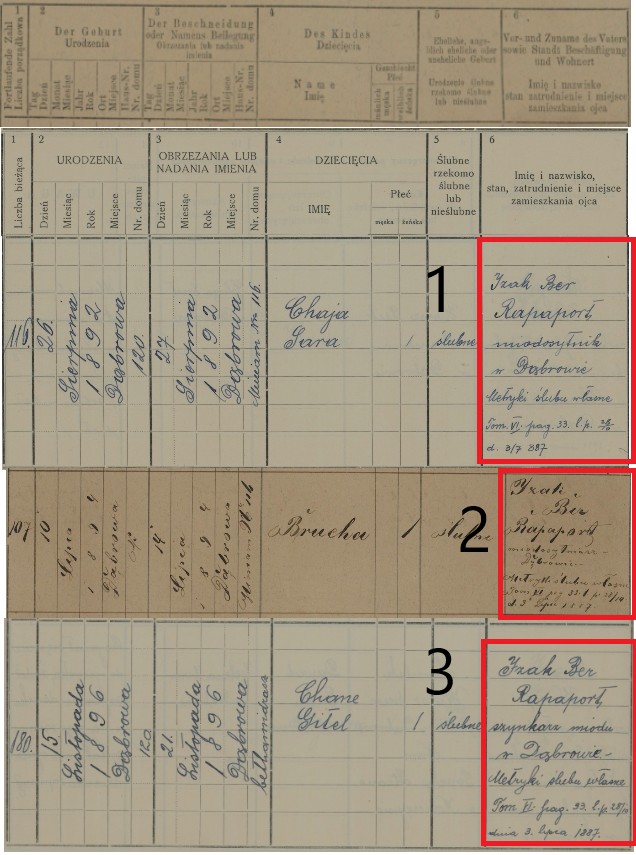 1
Fortlaufende Zahl
Liczba porządkowa
2
Der Geburt
Urodzenia
Tag
Dzień
Monat
Miesiąc
Jahr
Rok
Ort
Miejsce
Haus-Nr.
Nr. domu
3
Der Beschneidung
oder Namens Beilegung
Obrzezania lub nadania
imienia
Tag
Dzień
Monat
Miesiąc
Jahr
Rok
Ort
Miejsce
Haus-Nr.
Nr. domu
4
Des Kindes
Dziecięcia
Name
Imię
Geschlecht
Płeć
männlich
męska
weiblich
żeńska
5
6
Vor- und Zuname des Vaters
sowie Standt Beschäftigung
und Wohnort
Imię i nazwisko
stan, zatrudnienie i miejsce
zamieszkania ojca
1
Liczba bieżąca
2
URODZENIA
Dzień
Miesiąc
Rok
Miejsce
Nr. domu
3
OBRZEZANIA LUB
NADANIA IMIENIA
Dzień
Miesiąc
Rok
Miejsce
Nr. domu
4
DZIECIĘCIA
IMIĘ
Płeć
męska
żeńska
5
Ślubne
rzekomo
ślubne
lub
nieślubne
6
Imię i nazwisko,
stan, zatrudnienie i miejsce
zamieszkania ojca
116.
26.
Sierpnia
1892
Dąbrowa
120
27
Sierpnia
1892
Dąbrowa
Miriam Nr 116.
Chaja
Sara
1
ślubne
1
Izak Ber
Rapaport
miodosytnik
w Dąbrowie
Metryki ślubu własne
Tom VI. pag. 33. l. p.
d. 3/7 887
107
10
Lipca
1894
Dąbrowa
14
Lipca
1894
Dąbrowa
Brucha
1
2
Izak
Ber
Rapaport
Dąbrowie
Metryki ślubu własne
180.
15
Listopada
1896
Dąbrowa
120
21.
Listopada
1896
Dąbrowa
bethamidrasz
Chane
Gitel
1
ślubne
3
Izak Ber
Rapaport
szynkarz miodu
w Dąbrowie-
Metryki ślubu własne
Tom VI. pag. 33. l. p. 28/14
dnia 3. lipca 1887.